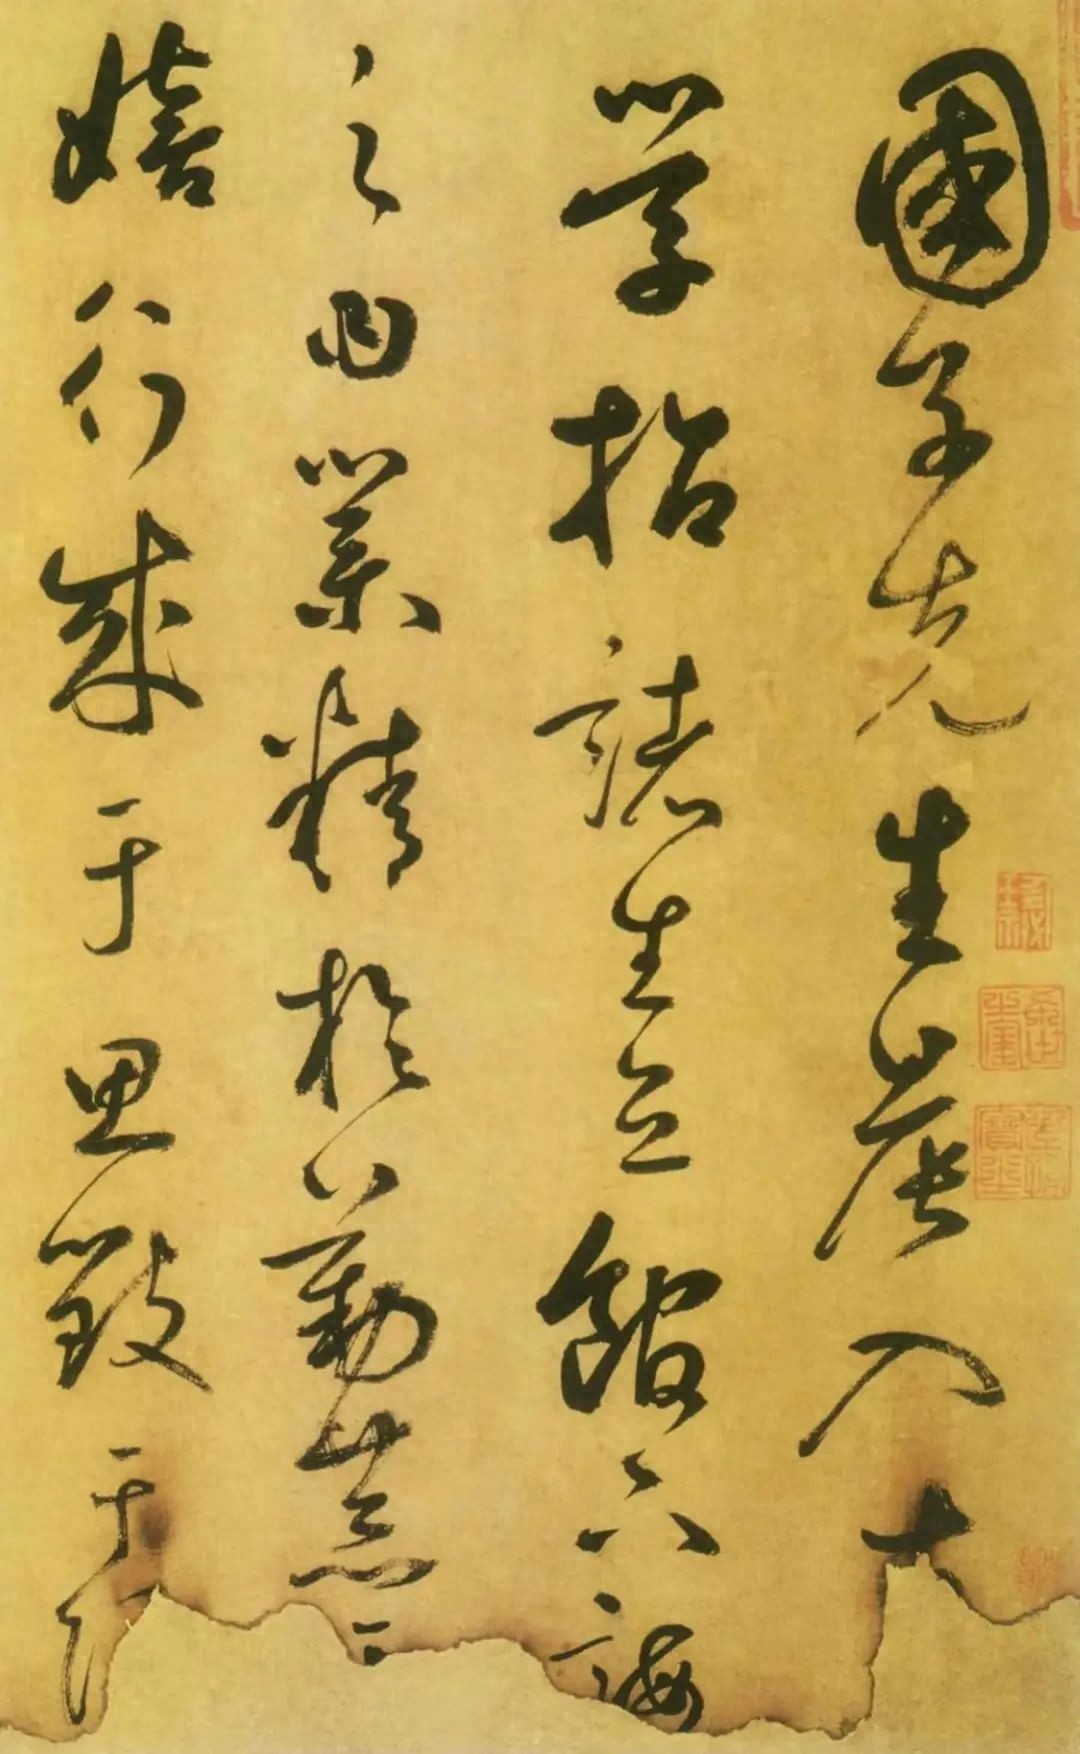 國子先生晨入大
學招諸生立館下誨
之曰業精於勤荒
嬉行成于思毀于